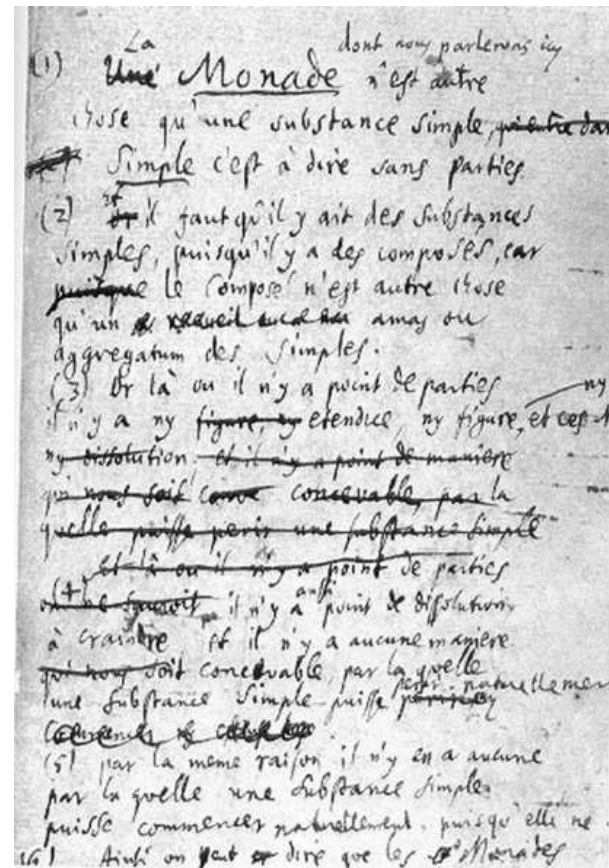 La dont nous parlerons icy
(1) Une Monade n'est autre
chose qu'une substance simple, qui entre dan
Simple c'est à dire sans parties.
(2) et il faut qu'il y ait des substances
simples, puisqu'il y a des composés, car
puisque le Composé n'est autre chose
qu'un recueil amas ou
aggregatum des simples.
(3) Or là ou il n'y a point de parties
ny
il n'y a ny figure, ny etendue, ny figure, et ces
ny dissolution. et il n'y a point de maniere
qui nous soit concevable, par la
quelle puisse perir une substance simple
Et là ou il n'y a point de parties
aussi
(4) on ne sauroit il n'y a point de dissolution
à craindre et il n'y a aucune maniere
qui nous soit concevable, par la quelle
une Substance Simple puisse perir naturellemen
(5) par la meme raison il n'y en a aucune
par la quelle une substance simple
puisse commencer naturellement. puisqu'elle ne
Ainsi on peut dire que les Monades